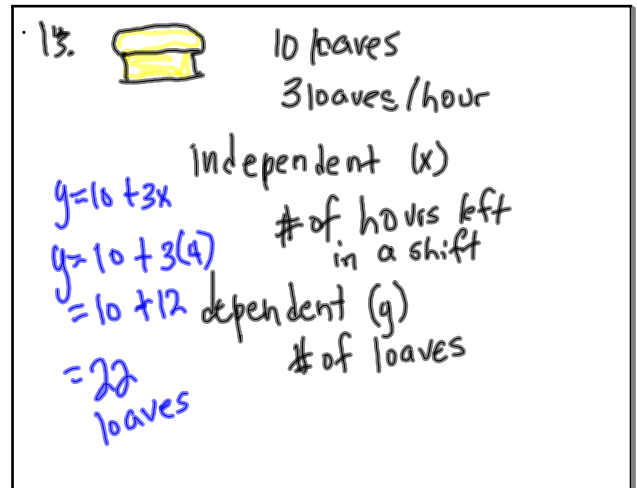 13.
10 loaves
3 loaves/hour
independent (x)
# of hours left
in a shift
dependent (y)
# of loaves
y=10+3x
y=10+3(4)
=10+12
=22
loaves